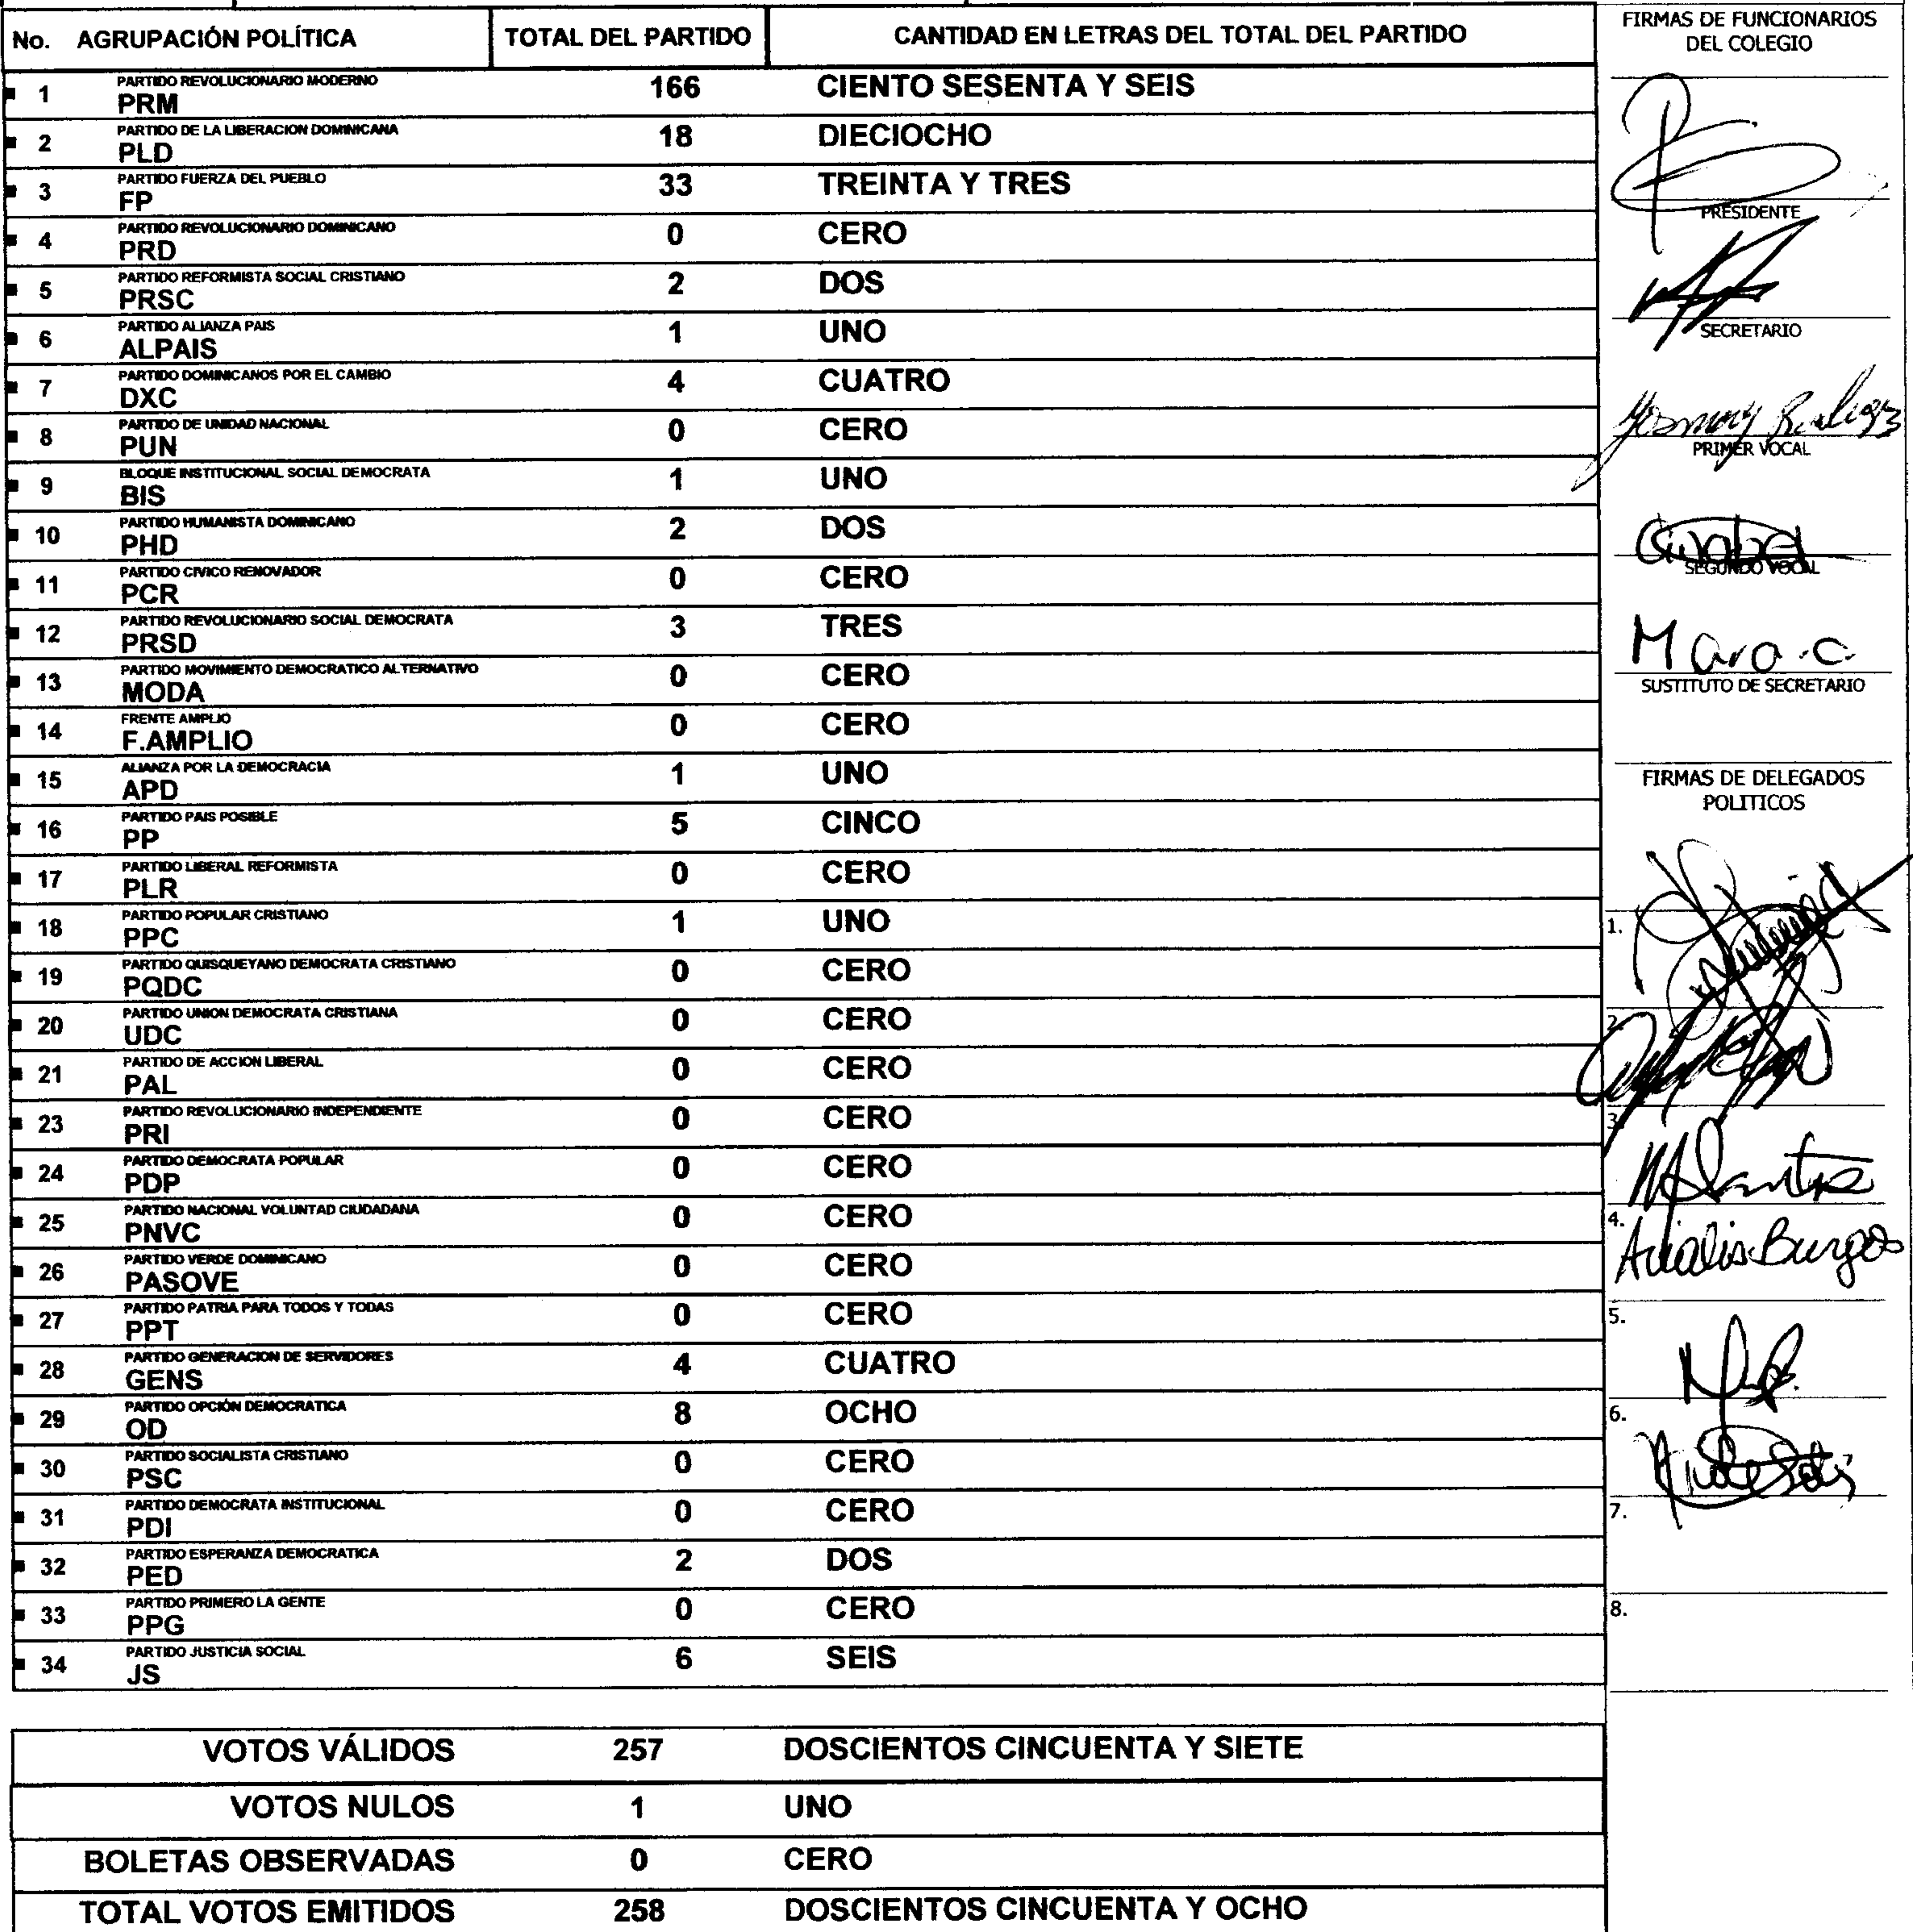 No. AGRUPACIÓN POLÍTICA TOTAL DEL PARTIDO CANTIDAD EN LETRAS DEL TOTAL DEL PARTIDO
1 PARTIDO REVOLUCIONARIO MODERNO
PRM 166 CIENTO SESENTA Y SEIS
2 PARTIDO DE LA LIBERACION DOMINICANA
PLD 18 DIECIOCHO
3 PARTIDO FUERZA DEL PUEBLO
FP 33 TREINTA Y TRES
4 PARTIDO REVOLUCIONARIO DOMINICANO
PRD 0 CERO
5 PARTIDO REFORMISTA SOCIAL CRISTIANO
PRSC 2 DOS
6 PARTIDO ALIANZA PAIS
ALPAIS 1 UNO
7 PARTIDO DOMINICANOS POR EL CAMBIO
DXC 4 CUATRO
8 PARTIDO DE UNIDAD NACIONAL
PUN 0 CERO
9 BLOQUE INSTITUCIONAL SOCIAL DEMOCRATA
BIS 1 UNO
10 PARTIDO HUMANISTA DOMINICANO
PHD 2 DOS
11 PARTIDO CIVICO RENOVADOR
PCR 0 CERO
12 PARTIDO REVOLUCIONARIO SOCIAL DEMOCRATA
PRSD 3 TRES
13 PARTIDO MOVIMIENTO DEMOCRATICO ALTERNATIVO
MODA 0 CERO
14 FRENTE AMPLIO
F.AMPLIO 0 CERO
15 ALIANZA POR LA DEMOCRACIA
APD 1 UNO
16 PARTIDO PAIS POSIBLE
PP 5 CINCO
17 PARTIDO LIBERAL REFORMISTA
PLR 0 CERO
18 PARTIDO POPULAR CRISTIANO
PPC 1 UNO
19 PARTIDO QUISQUEYANO DEMOCRATA CRISTIANO
PQDC 0 CERO
20 PARTIDO UNION DEMOCRATA CRISTIANA
UDC 0 CERO
21 PARTIDO DE ACCION LIBERAL
PAL 0 CERO
23 PARTIDO REVOLUCIONARIO INDEPENDIENTE
PRI 0 CERO
24 PARTIDO DEMOCRATA POPULAR
PDP 0 CERO
25 PARTIDO NACIONAL VOLUNTAD CIUDADANA
PNVC 0 CERO
26 PARTIDO VERDE DOMINICANO
PASOVE 0 CERO
27 PARTIDO PATRIA PARA TODOS Y TODAS
PPT 0 CERO
28 PARTIDO GENERACION DE SERVIDORES
GENS 4 CUATRO
29 PARTIDO OPCIÓN DEMOCRATICA
OD 8 OCHO
30 PARTIDO SOCIALISTA CRISTIANO
PSC 0 CERO
31 PARTIDO DEMOCRATA INSTITUCIONAL
PDI 0 CERO
32 PARTIDO ESPERANZA DEMOCRATICA
PED 2 DOS
33 PARTIDO PRIMERO LA GENTE
PPG 0 CERO
34 PARTIDO JUSTICIA SOCIAL
JS 6 SEIS
VOTOS VÁLIDOS 257 DOSCIENTOS CINCUENTA Y SIETE
VOTOS NULOS 1 UNO
BOLETAS OBSERVADAS 0 CERO
TOTAL VOTOS EMITIDOS 258 DOSCIENTOS CINCUENTA Y OCHO
FIRMAS DE FUNCIONARIOS
DEL COLEGIO
PRESIDENTE
SECRETARIO
PRIMER VOCAL
SEGUNDO VOCAL
Mara.c.
SUSTITUTO DE SECRETARIO
FIRMAS DE DELEGADOS
POLITICOS
1.
2.
3.
4.
Burgos
5.
6.
7.
8.